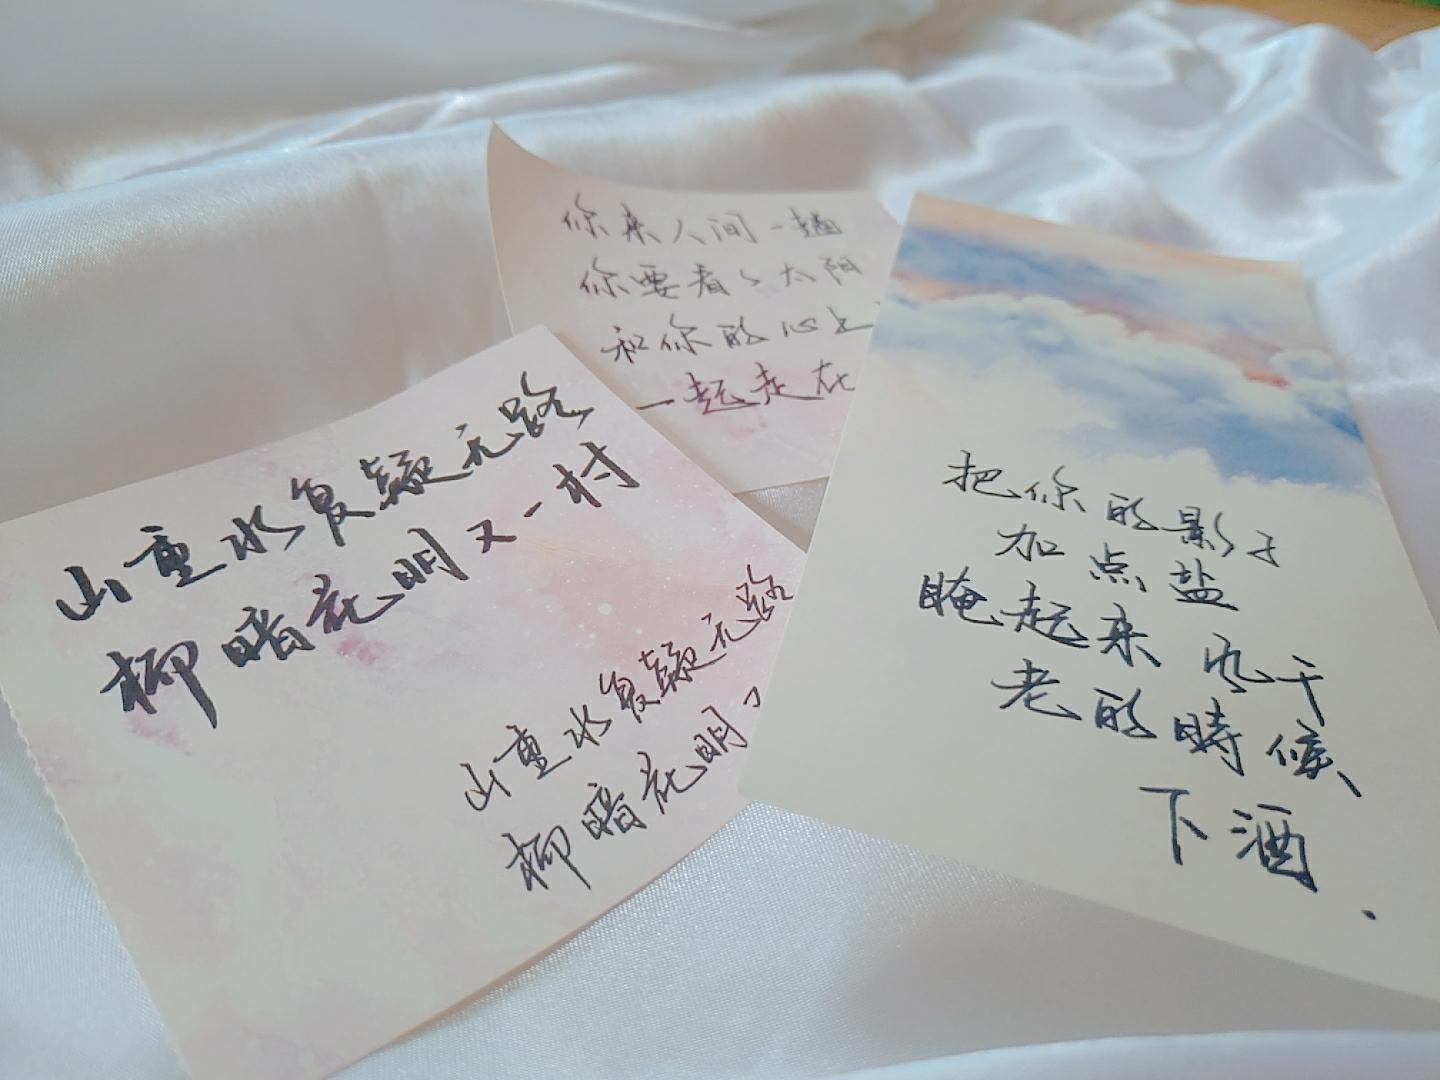 山重水复疑无路
柳暗花明又一村
山重水复疑无路
柳暗花明
你来人间一趟
你要看看太阳
和你的心上
一起走在
把你的影子
加点盐
腌起来 风干
老的時候
下酒.